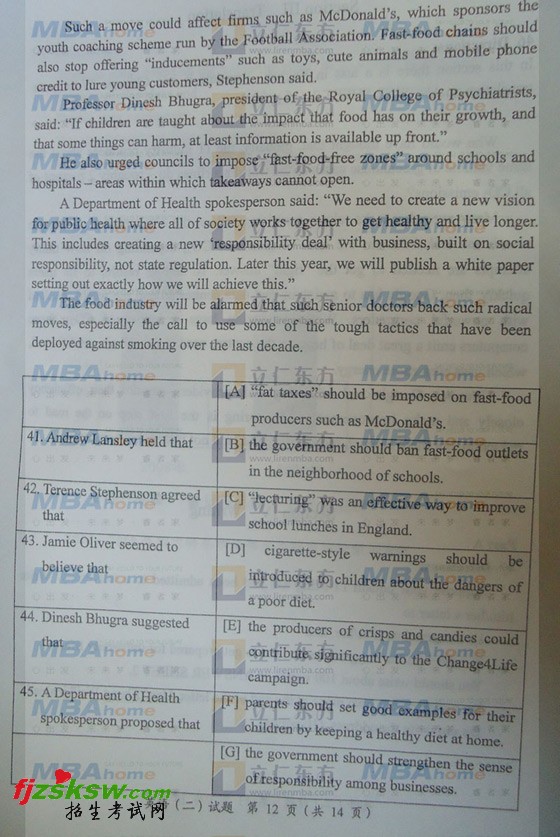 Such a move could affect firms such as McDonald's, which sponsors the
youth coaching scheme run by the Football Association. Fast-food chains should
also stop offering "inducements" such as toys, cute animals and mobile phone
credit to lure young customers, Stephenson said.
Professor Dinesh Bhugra, president of the Royal College of Psychiatrists,
said: "If children are taught about the impact that food has on their growth, and
that some things can harm, at least information is available up front."
He also urged councils to impose "fast-food-free zones" around schools and
hospitals – areas within which takeaways cannot open.
A Department of Health spokesperson said: "We need to create a new vision
for public health where all of society works together to get healthy and live longer.
This includes creating a new 'responsibility deal' with business, built on social
responsibility, not state regulation. Later this year, we will publish a white paper
setting out exactly how we will achieve this."
The food industry will be alarmed that such senior doctors back such radical
moves, especially the call to use some of the tough tactics that have been
deployed against smoking over the last decade.
[A] "fat taxes" should be imposed on fast-food
producers such as McDonald's.
41. Andrew Lansley held that
[B] the government should ban fast-food outlets
in the neighborhood of schools.
42. Terence Stephenson agreed
that
[C] "lecturing" was an effective way to improve
school lunches in England.
43. Jamie Oliver seemed to
believe that
[D] cigarette-style warnings should be
introduced to children about the dangers of
a poor diet.
44. Dinesh Bhugra suggested
that
[E] the producers of crisps and candies could
contribute significantly to the Change4Life
campaign.
45. A Department of Health
spokesperson proposed that
[F] parents should set good examples for their
children by keeping a healthy diet at home.
[G] the government should strengthen the sense
of responsibility among businesses.
(二)试题 第 12 页(共 14 页)
MBAhome
立仁东方
www.lirenmba.com
fjzsksw.com
招生考试网